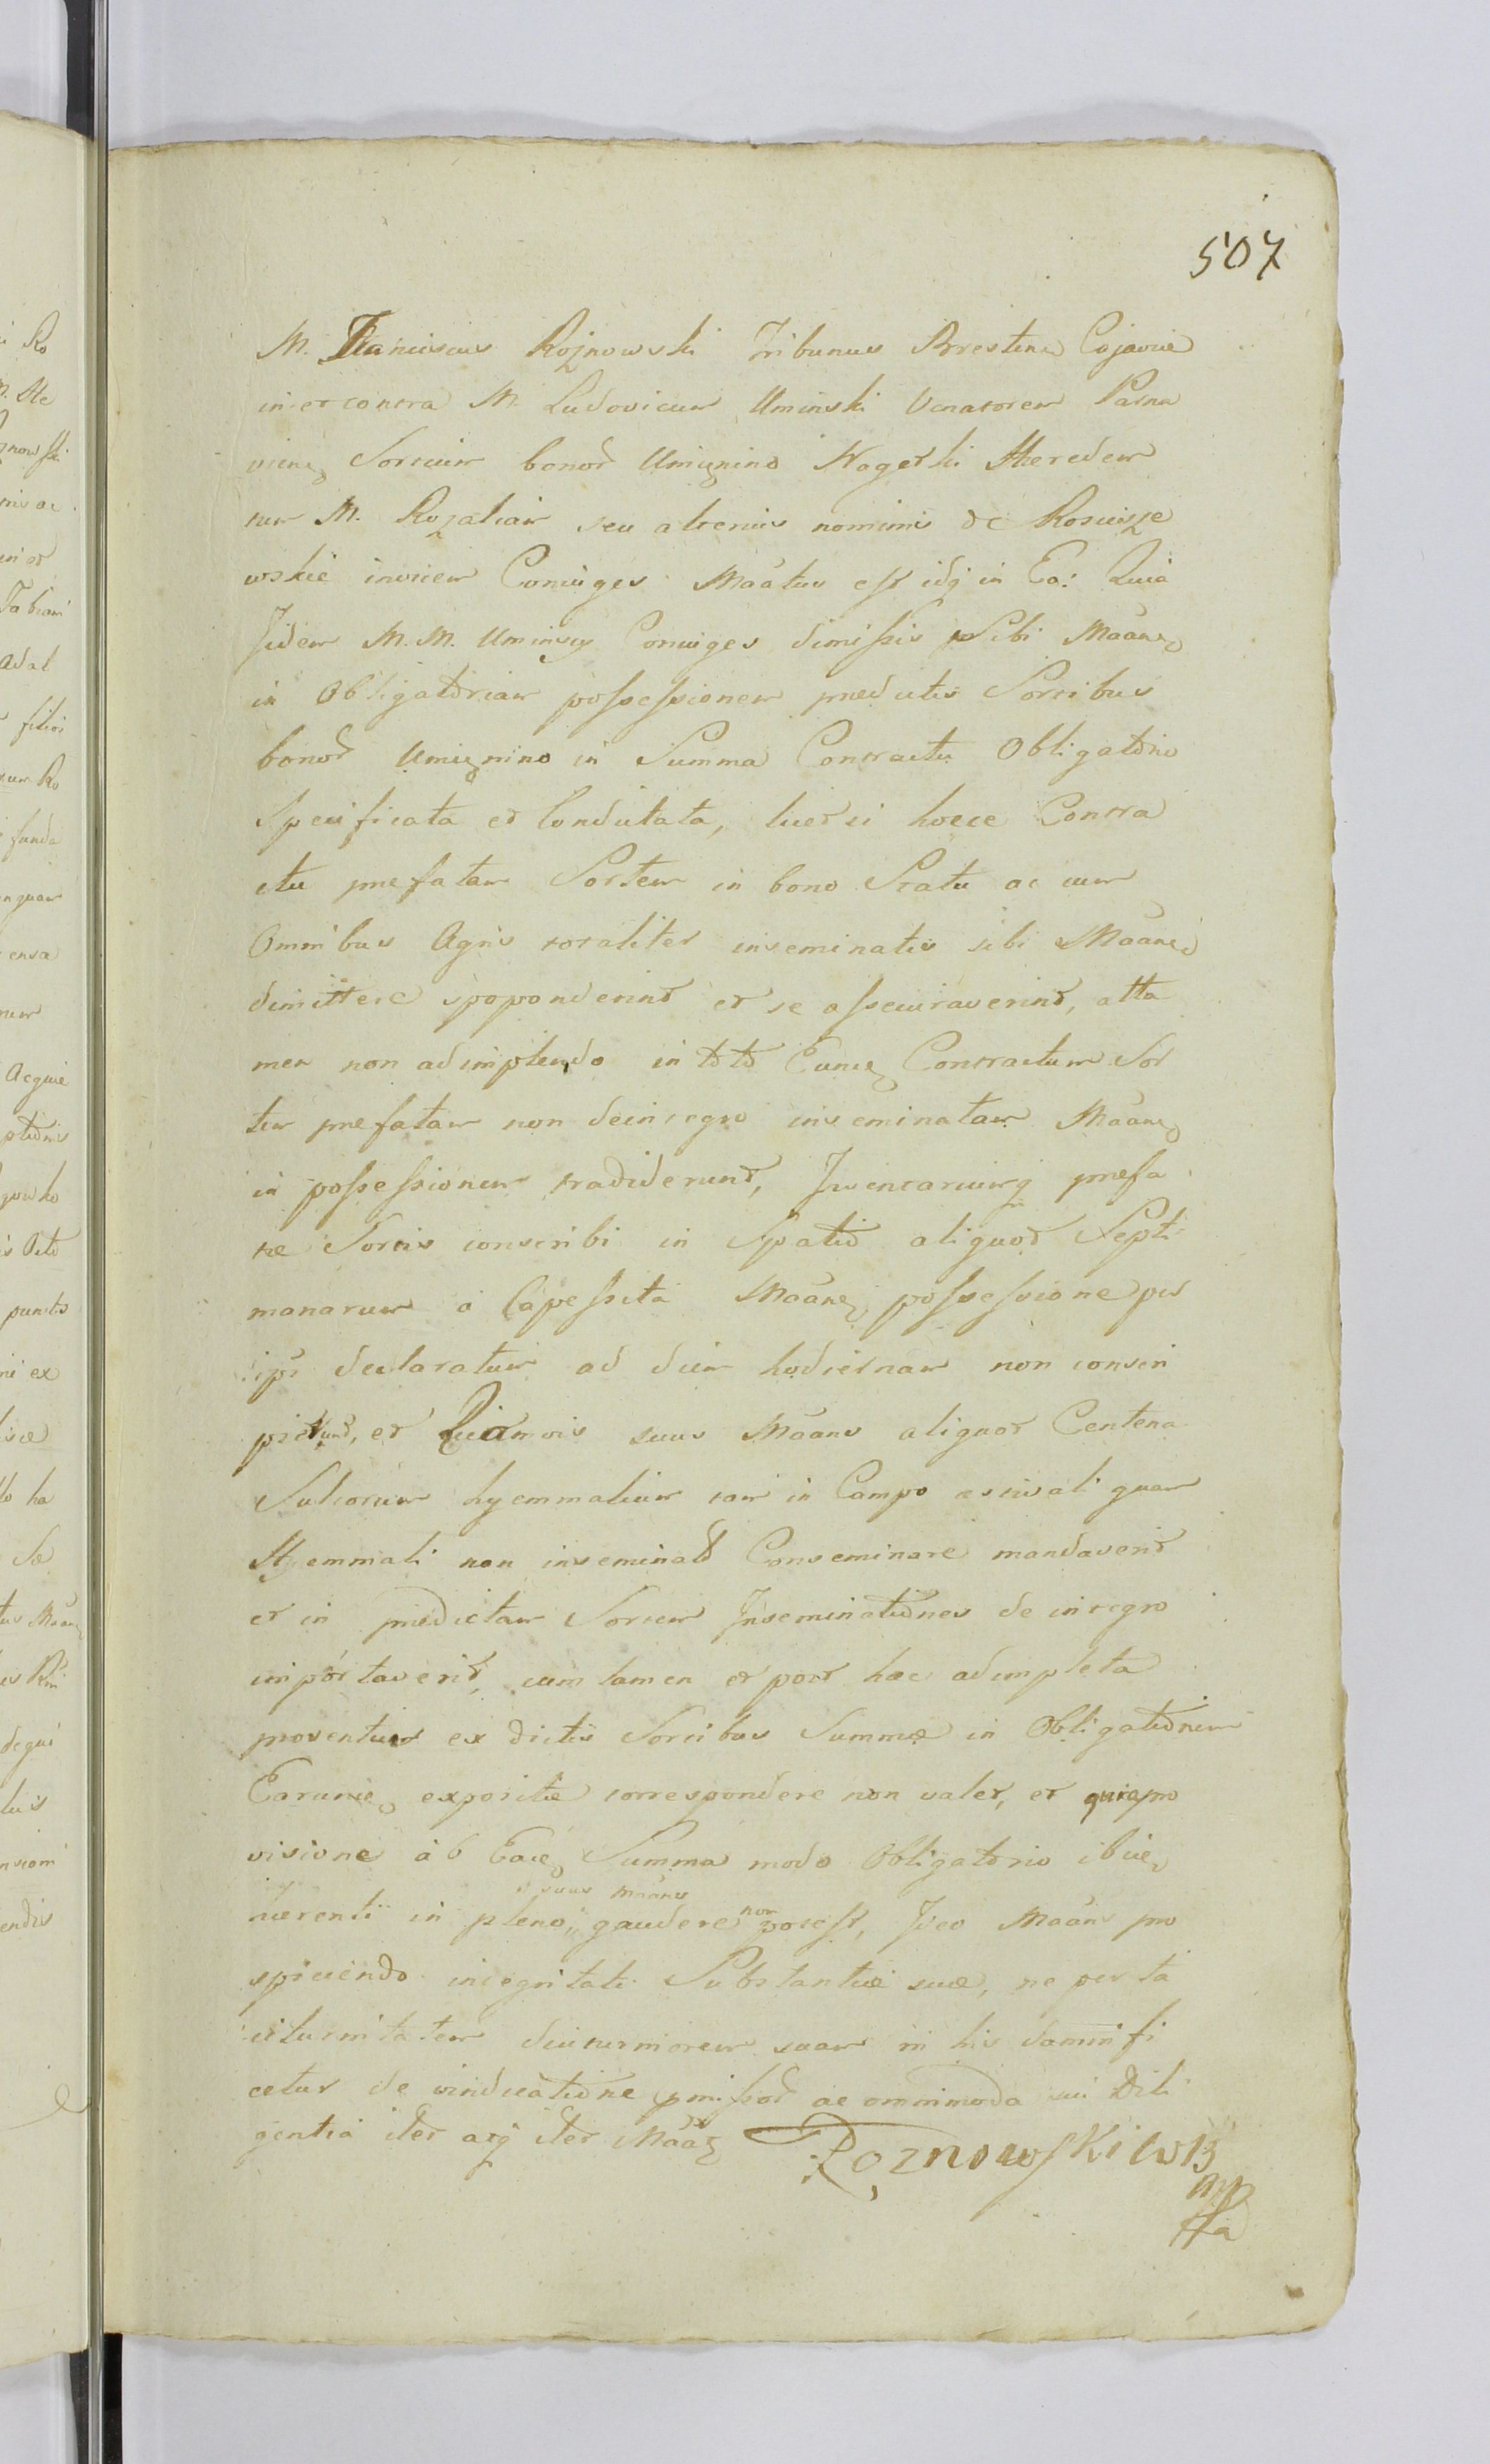 507
M. Franciscus Rożnowski Tribunus Brestens Cujaviæ
in et contra M. Ludovicum Uminski Venatorem Parna
viens Sortium bonor Umięnino Nagorki Heredem
tum M. Rozaliam seu alterius nominis de Koscisze
wskie invicem Conjuges Maãtus est idq in Eo: Quia
Iidem M. M. Uminscy Conjuges dimissis Sibi Maãnę
in Obligatoriam possessionem prædictis Sortibus
bonor Umięnino in Summa Contractu Obligatorio
Specificata et Condictata, licet ei hocce Contra
ctu præfatam Sortem in bono Statu ac cum
Omnibus Agris totaliter inseminatis sibi Maãnti
dimittere spoponderint et se assecuraverint, atta
men non adimplendo in toto Eunce Contractum Sor
tem præfatam non de integro inseminatam Maãnę
in possessionem tradiderunt, Inventariumq præfa
tæ Sortis conscribi in Spatio aliquot Septi
manarum à Capessita Maãnę possessione per
ips declaratum ad diem hodiernam non conscri
pserunt, et Quamvis suus Maãns aliquot Centena
Sulcorum hyemmalium tam in Campo æstivali quam
Hyemmali non inseminato Conseminare mandaverit
et in prædictam Sortem Inseminationes de integro
importaverit, cum tamen et post hæc adimpleta
proventus ex dictis Sortibus Summæ in Obligationem
Earunce expositæ correspondere non valet, et quia pro
visione ab Eace Summa modo Obligatorio ibice
suus Maãns
inhærenti in pleno, gaudere non potest, Ideo Maãns pro
spiciendo integritati Substantiæ suæ, ne per ta
citurnitatem diuturniorem suam in his damnifi
cetur de vindicatione præmissor ac omnimoda sui Dili
gentia iter atq iter Maãt Rożnowski WB
mp
ffa